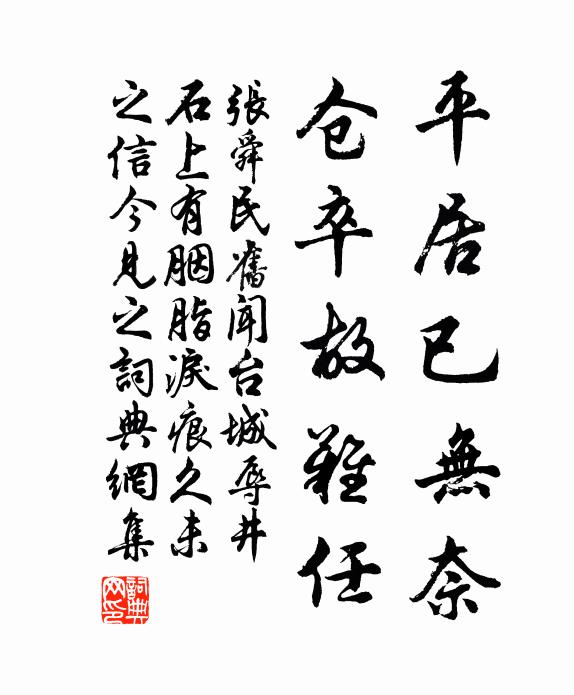 平居已無奈
仓卒故難任
張舜民舊聞台城辱井
石上有胭脂淚痕久未
之信今見之詞典網集
詞典网印